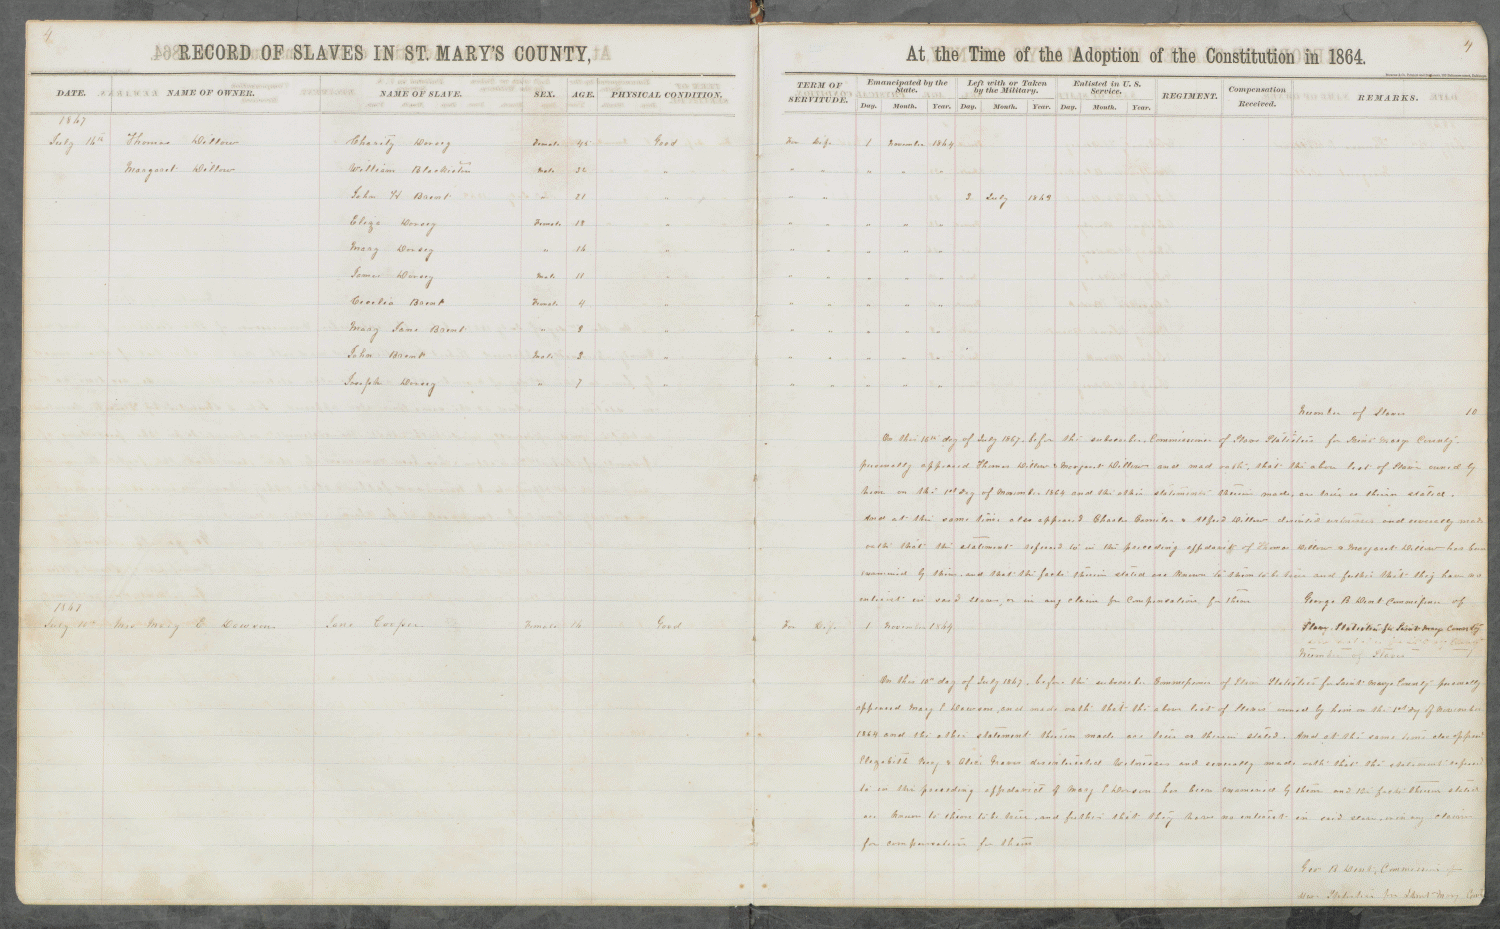 4
RECORD OF SLAVES IN ST. MARY'S COUNTY,
DATE. NAME OF OWNER. NAME OF SLAVE. SEX. AGE. PHYSICAL CONDITION.
1867
July 16th Thomas Dillow Charity Dorsey Female 45 Good
Margaret Dillow William Blackistin Male 32 " "
John H Brent " 21 "
Eliza Dorsey Female 18 "
Mary Dorsey " 16 "
James Dorsey Male 11 "
Cecelia Brent Female 4 "
Mary Jane Brent " 8 "
John Brent Male 2 "
Joseph Dorsey " 7 "
1867
July 10th Mrs Mary E Dawson Jane Cooper Female 16 Good
4
At the Time of the Adoption of the Constitution in 1864.
TERM OF SERVITUDE. Emancipated by the State. Left with or Taken by the Military. Enlisted in U. S. Service. REGIMENT. Compensation Received. REMARKS.
Day. Month. Year. Day. Month. Year. Day. Month. Year.
For Life 1 November 1864
" " " " "
" " 3 July 1864
" " " " "
" " " " "
" " " " "
" " " " "
" " " " "
" " " " "
" " " " "
Number of Slaves 10
On this 16th day of July 1867, before the subscriber, Commissioner of Slave Statistics for Saint Marys County
personally appeared Thomas Dillow & Margaret Dillow and mad oath, that the above list of Slaves owned by
him on the 1st day of November 1864 and the other statements therein made, are true as therein stated.
And at the same time also appeared Charles & Alfred Dillow witnesses and severally made
oath that the statement referred to in the preceding affidavit of Thomas Dillow & Margaret Dillow has been
examined by them, and that the facts therein stated are known to them to be true and further that they have no
interest in said slaves, or in any claim for Compensation for them George B Dent Commissioner of
For Life 1 November 1864 Slave Statistics for Saint Marys County
Number of Slaves 1
On this 10th day of July 1867, before the subscriber Commissioner of Slave Statistics for Saint Marys County personally
appeared Mary E Dawson, and made oath that the above list of Slaves owned by her on the 1st day of November
1864 and the other statement therein made are true as therein stated. And at the same time also appeared
Elizabeth & Graves Witnesses and severally made oath that the statement referred
to in the preceding affidavit of Mary E Dawson has been examined by them and the facts therein stated
are known to them to be true, and further that they have no interest in said slave, or in any claim
for compensation for them
Geo B Dent, Commissioner of
Slave Statistics for Saint Mary County